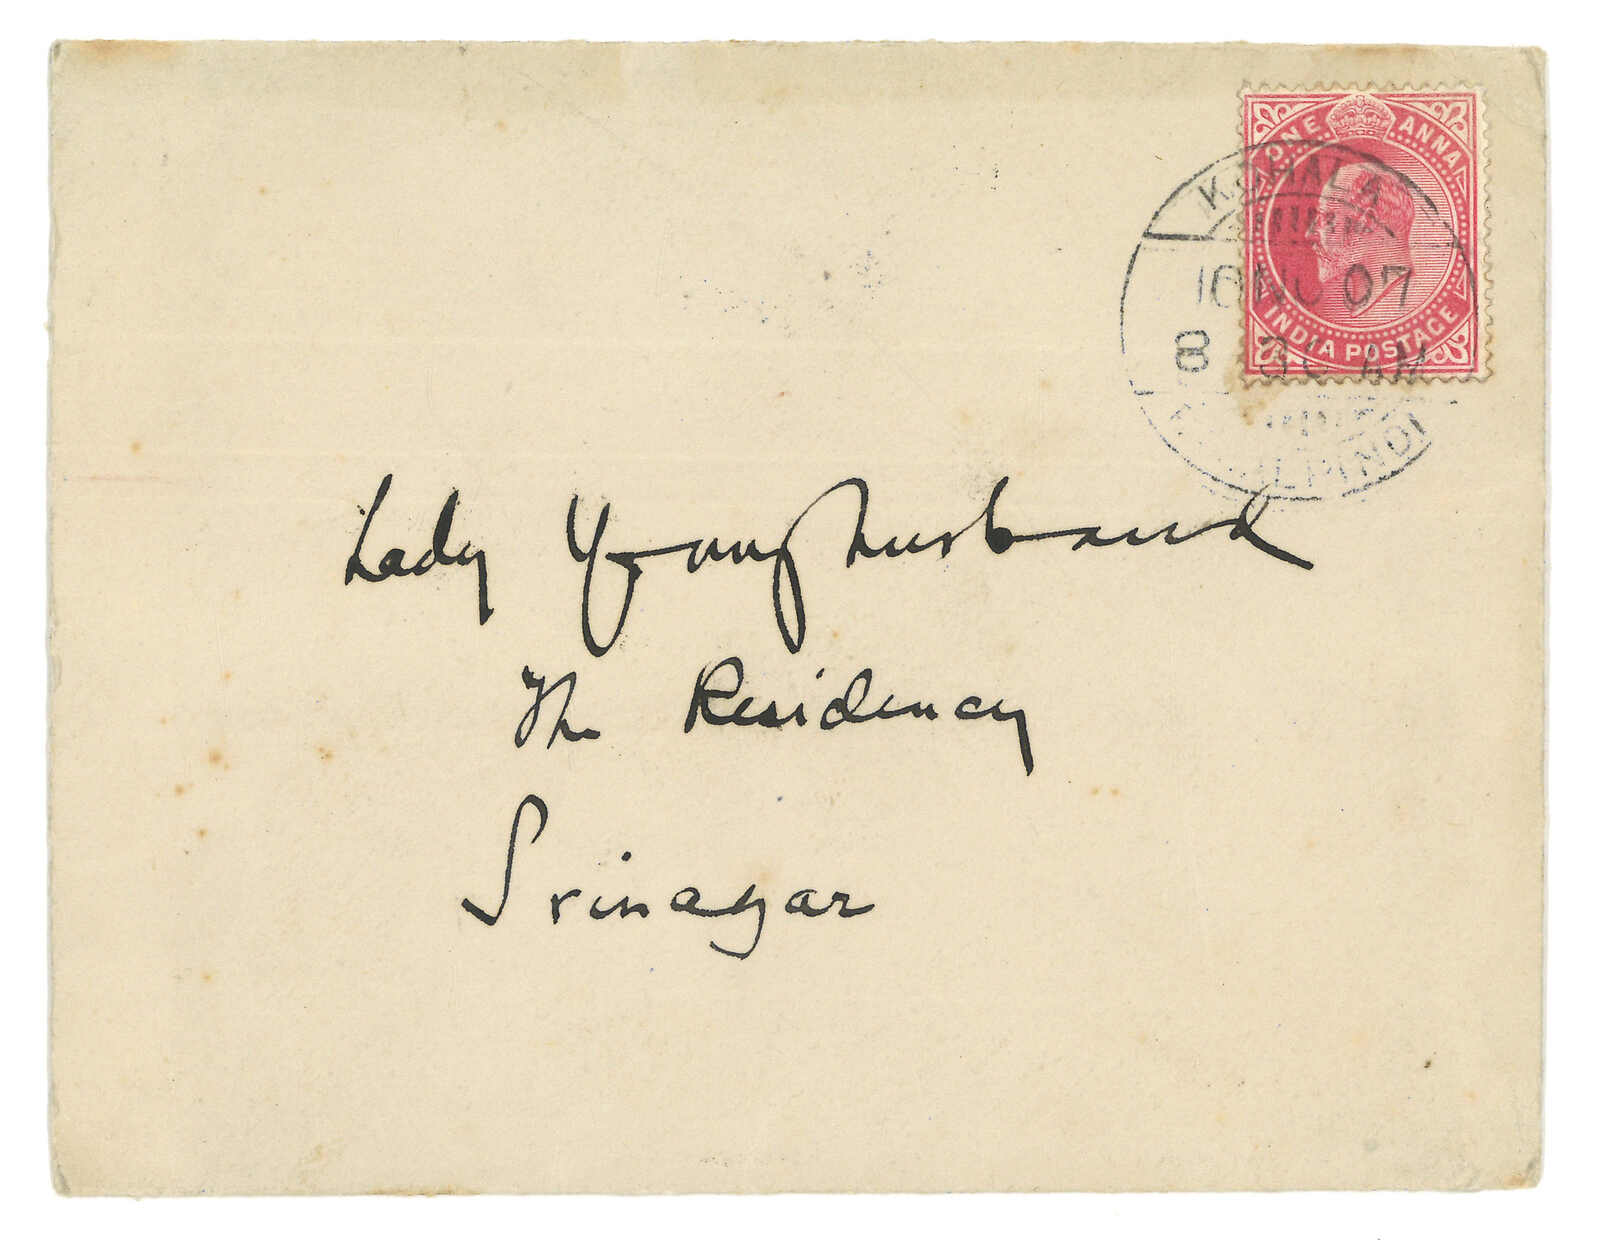 ONE ANNA
INDIA POSTAGE
KOHALA
16 NO 07
8 30 AM
Lady Younghusband
The Residency
Srinagar